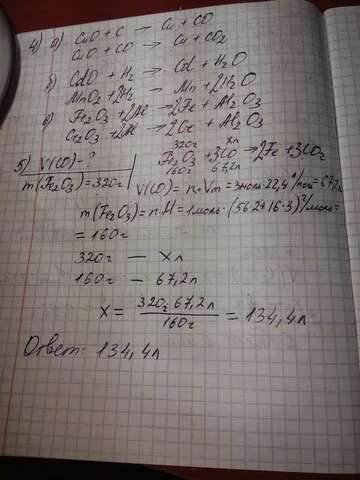 4) а) CuO + C → Cu + CO
CuO + CO → Cu + CO₂
б) CdO + H₂ → Cd + H₂O
MnO₂ + 2H₂ → Mn + 2H₂O
в) Fe₂O₃ + 2Al → 2Fe + Al₂O₃
Cr₂O₃ + 2Al → 2Cr + Al₂O₃
320г xл
5) V(CO) - ? Fe₂O₃ + 3CO → 2Fe + 3CO₂
160г 67,2л
m(Fe₂O₃) = 320г V(CO) = n·Vm = 3моль·22,4 л/моль = 67,2л
m(Fe₂O₃) = n·M = 1моль·(56·2+16·3) г/моль =
= 160г
320г — xл
160г — 67,2л
x = 320г·67,2л / 160г = 134,4л
Ответ: 134,4л